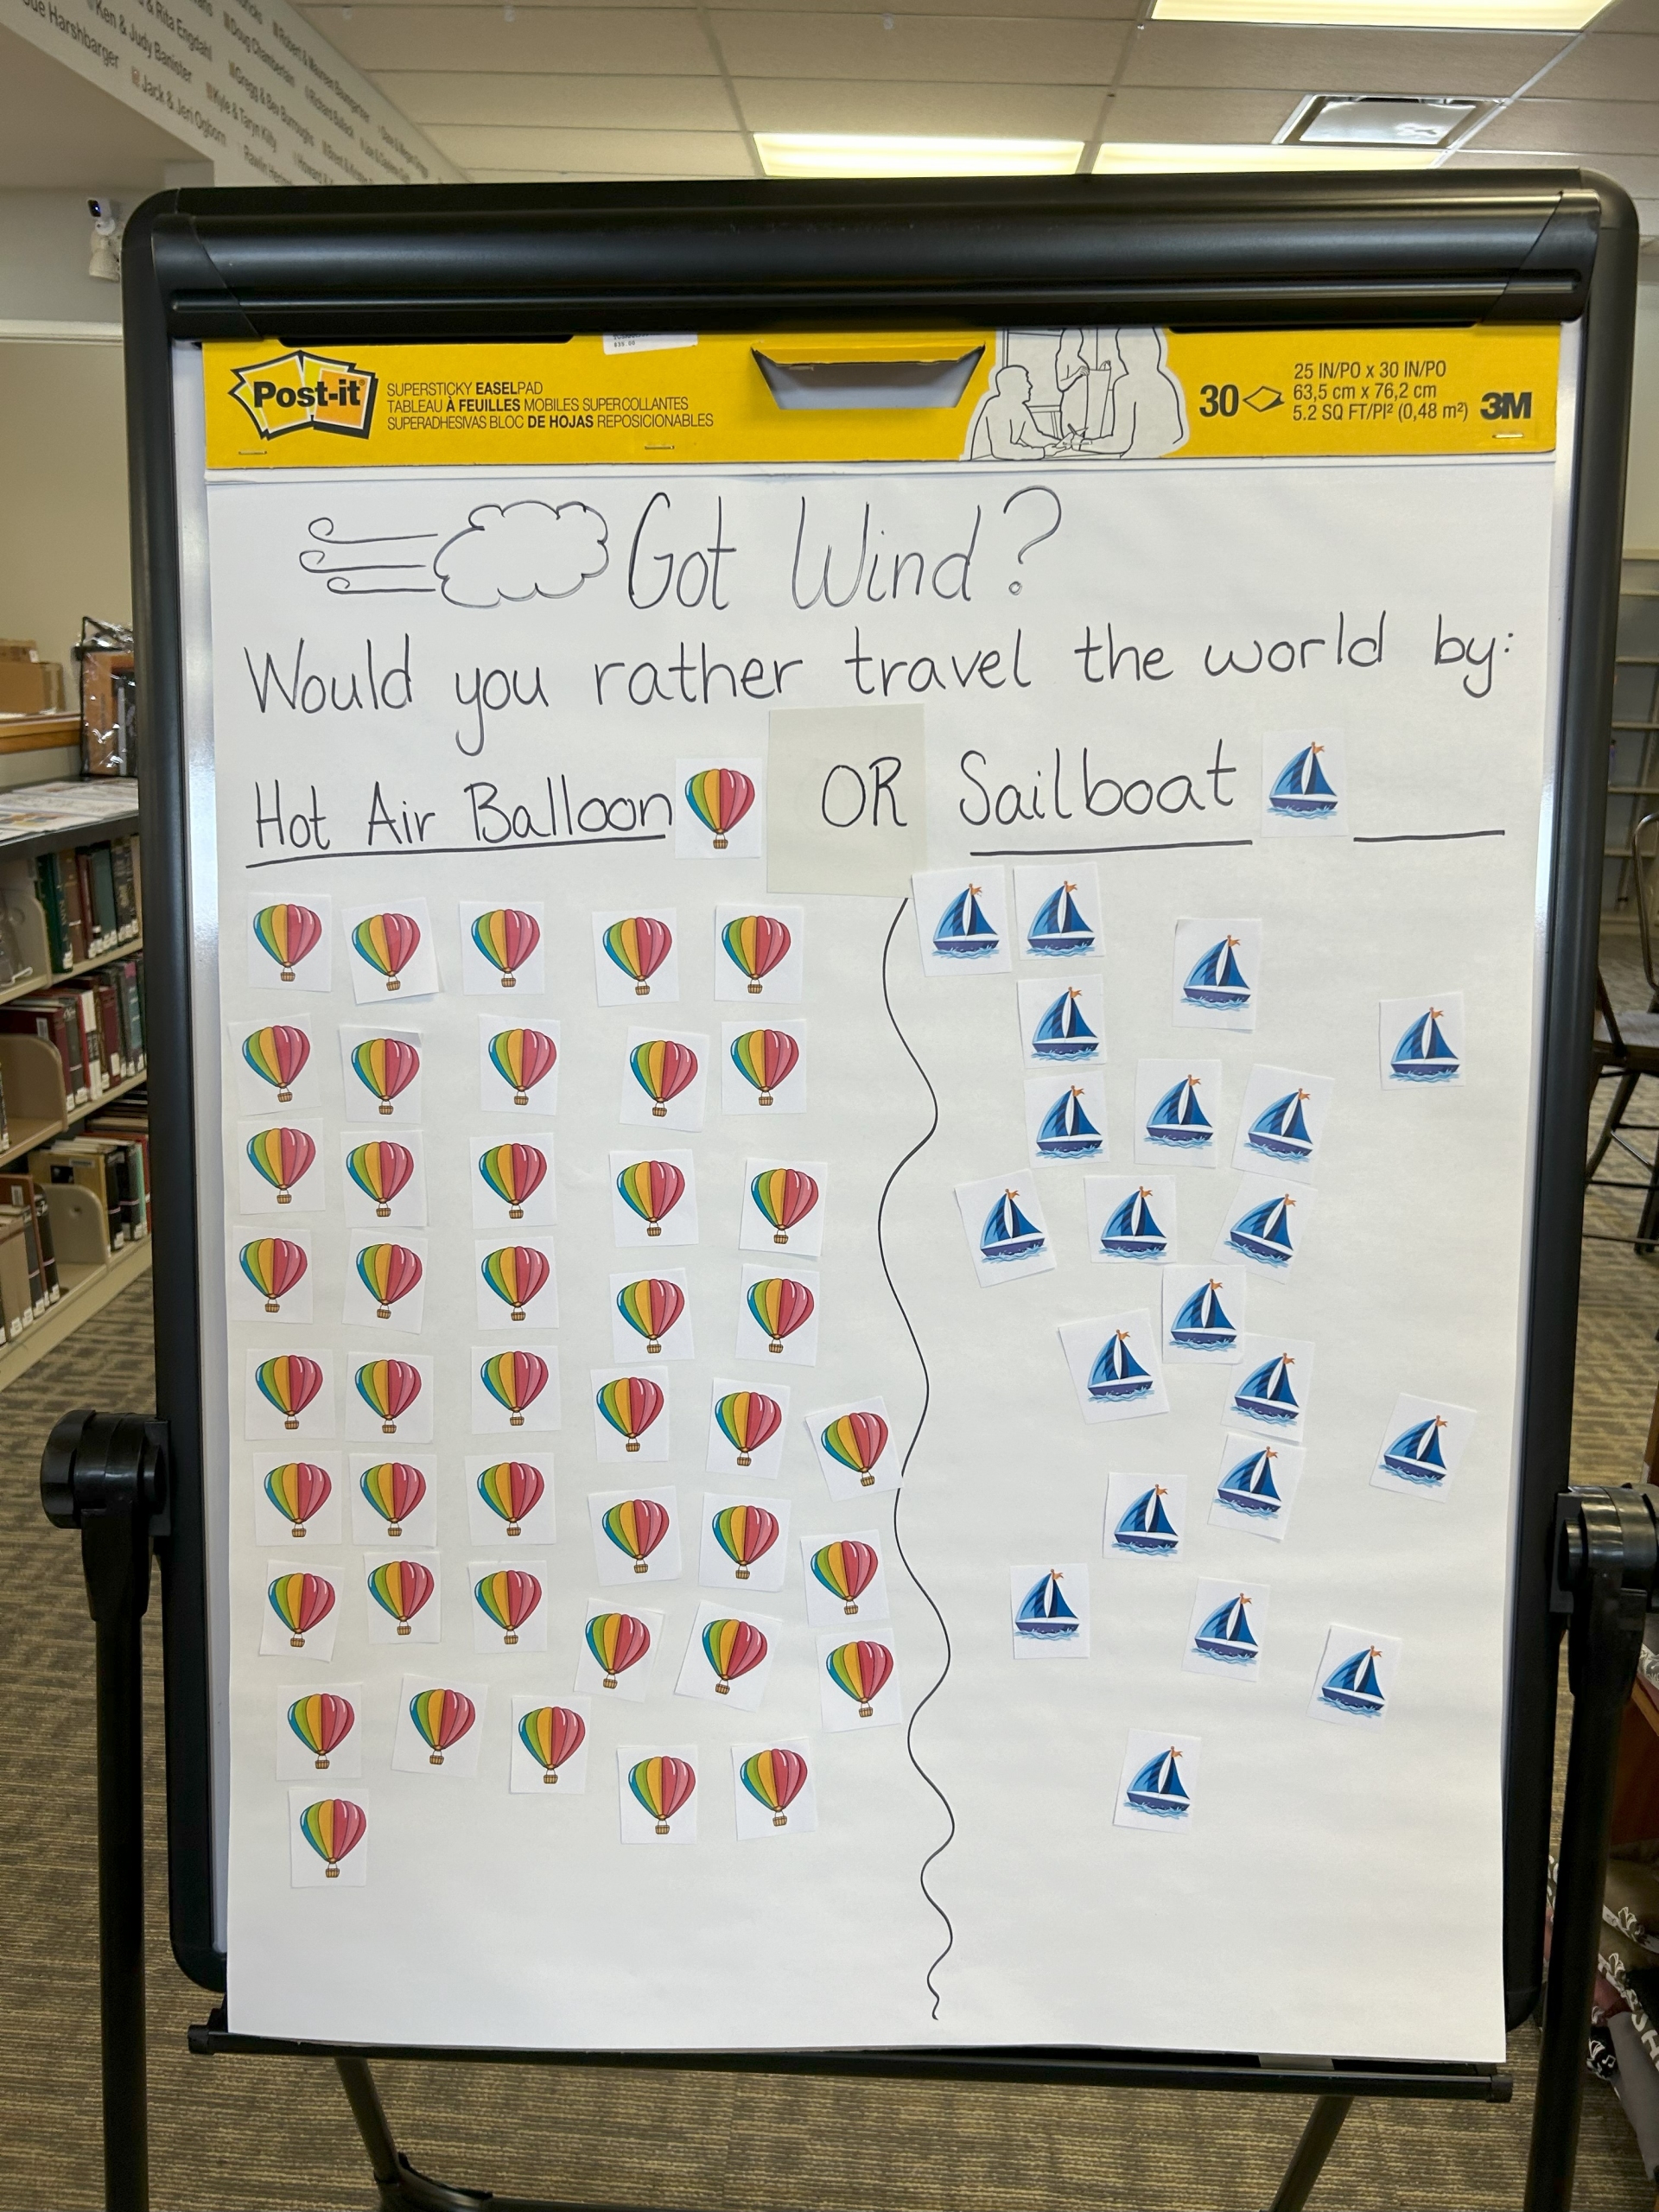 & Rita Engdahl
Doug Chamberlain
Robert & Maureen Baumgartner
Ken & Judy Banister
Gregg & Bev Burroughs
Richard Bullock
Harshbarger
Kyle & Taryn Kitty
Jack & Jeri Ogborn
Post-it
SUPERSTICKY EASELPAD
TABLEAU À FEUILLES MOBILES SUPERCOLLANTES
SUPERADHESIVAS BLOC DE HOJAS REPOSICIONABLES
30
25 IN/PO x 30 IN/PO
63,5 cm x 76,2 cm
5.2 SQ FT/PI² (0,48 m²)
3M
Got Wind?
Would you rather travel the world by:
Hot Air Balloon OR Sailboat